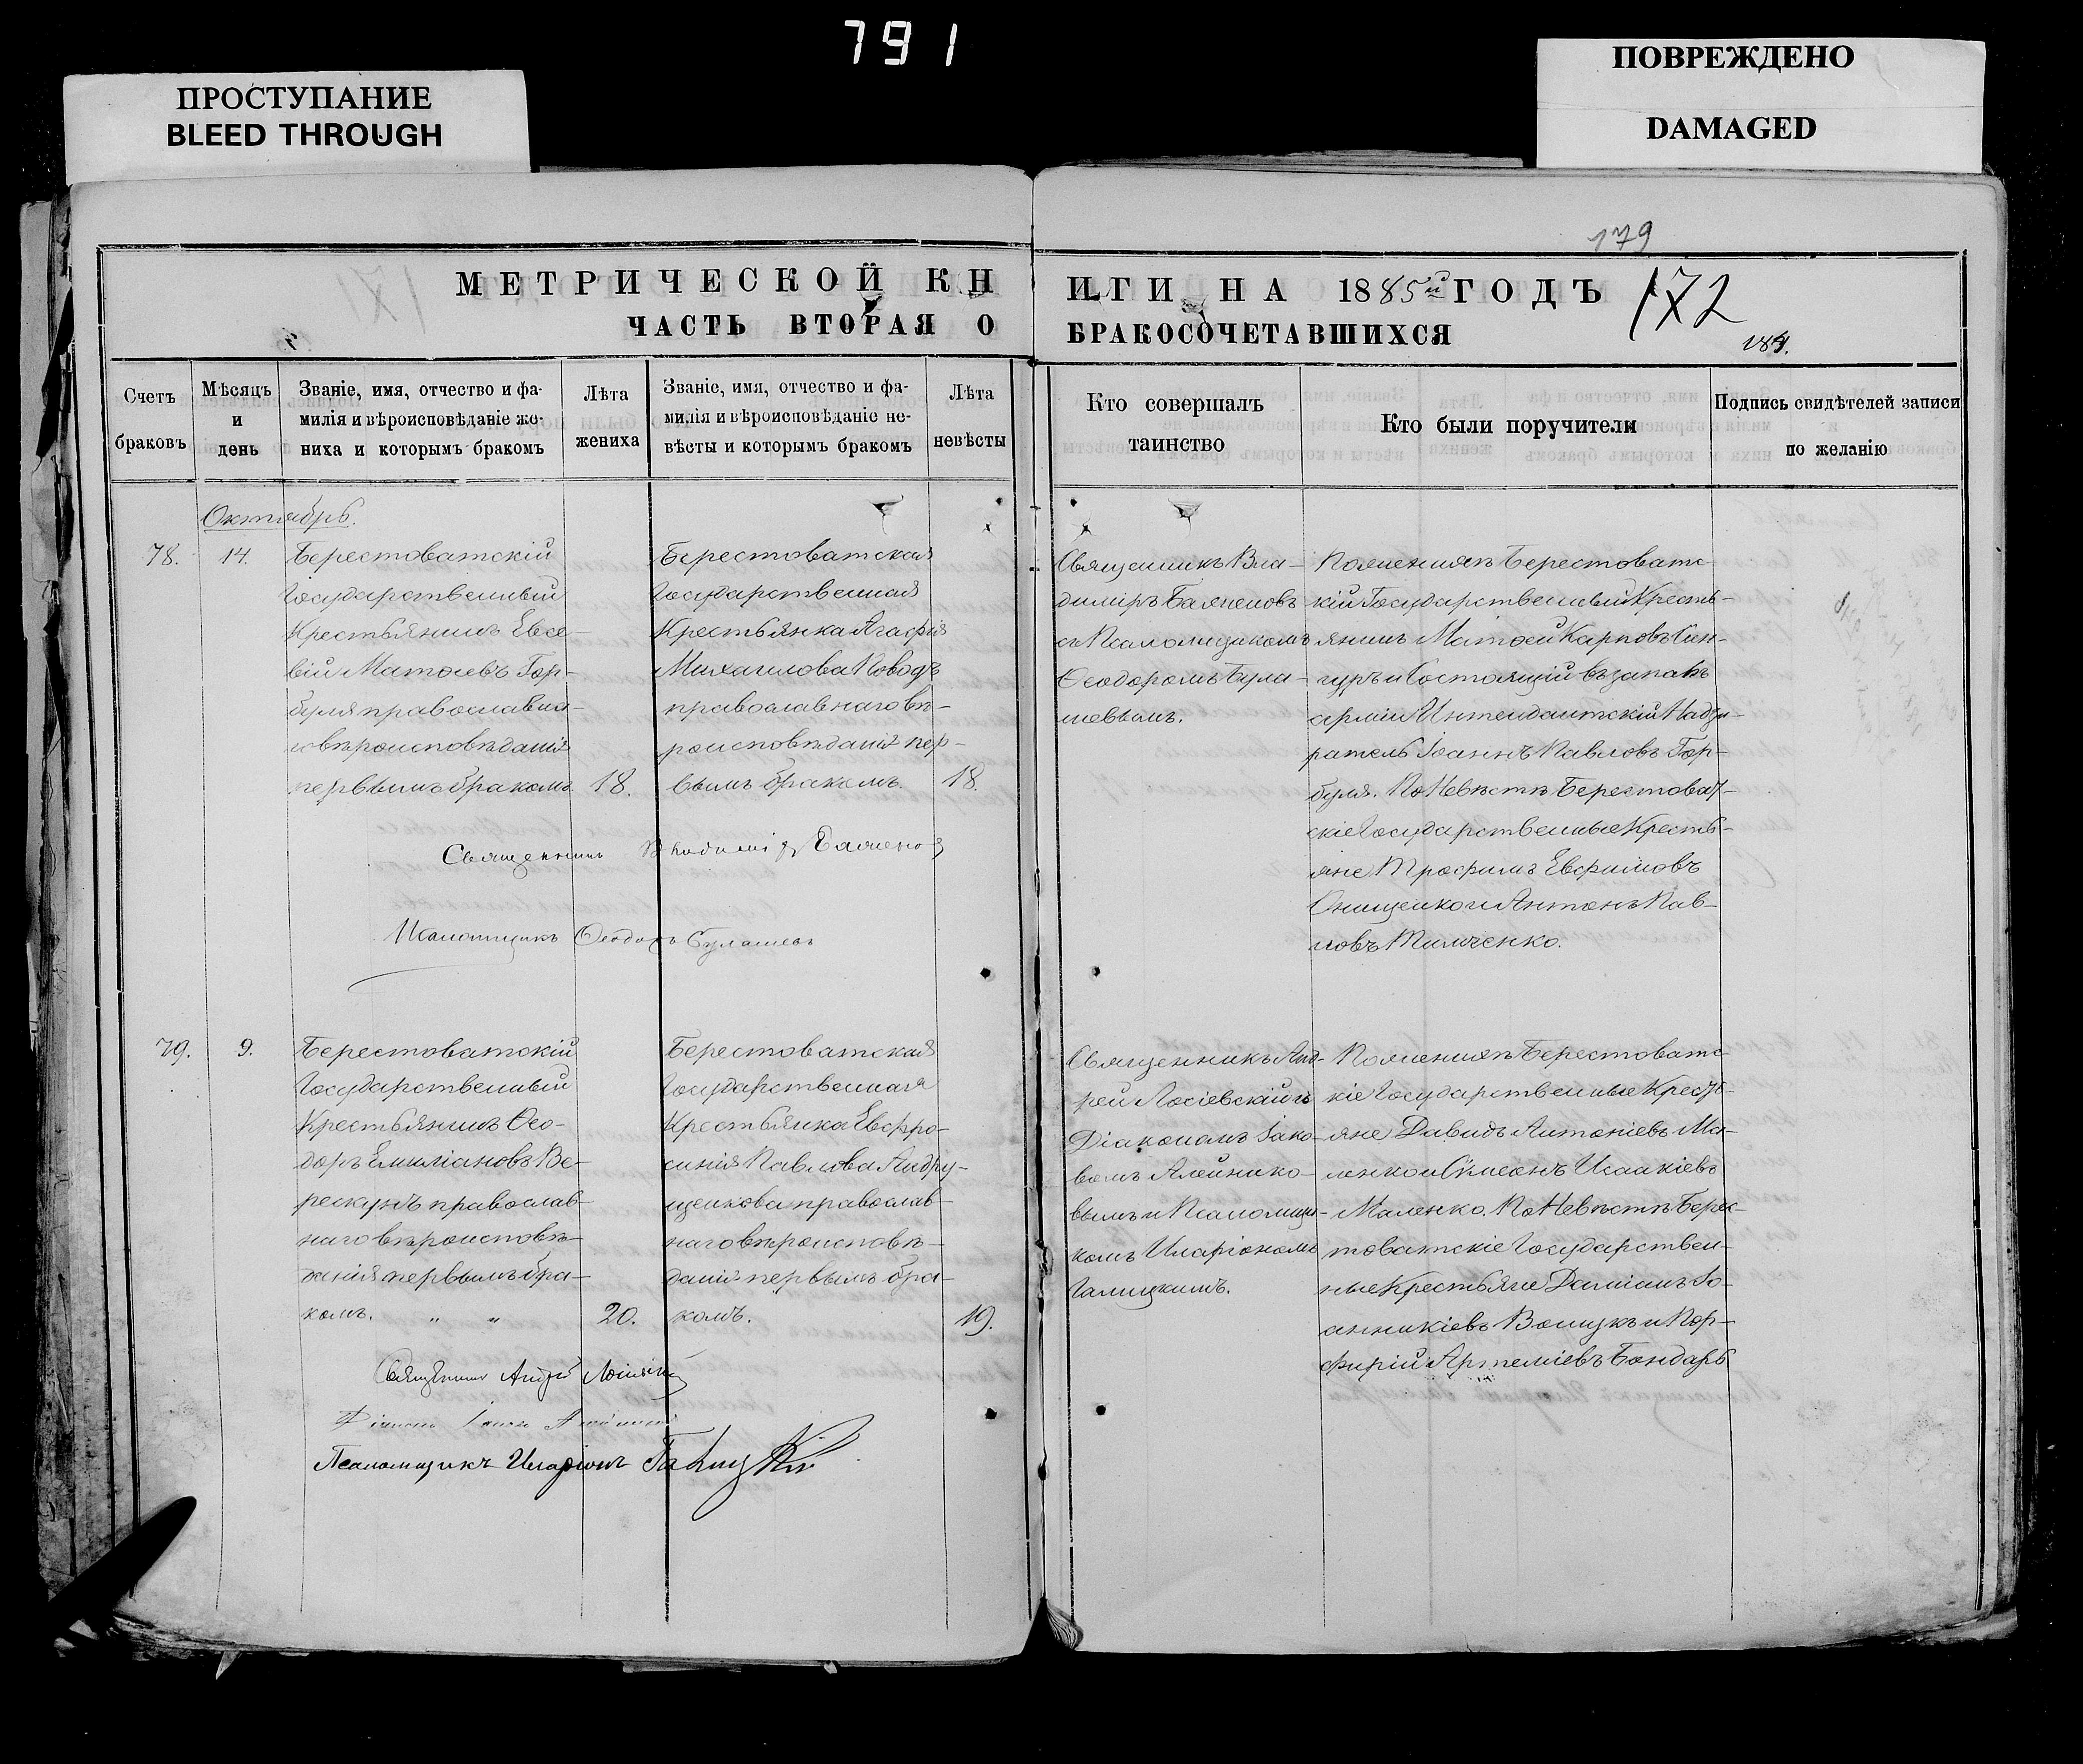 791
ПРОСТУПАНИЕ
BLEED THROUGH
ПОВРЕЖДЕНО
DAMAGED
179
МЕТРИЧЕСКОЙ КН
ЧАСТЬ ВТОРАЯ О
Счетъ
браковъ
Мѣсяцъ
и
день
Званіе, имя, отчество и фа-
милія и вѣроисповѣданіе же-
ниха и которымъ бракомъ
Лѣта
жениха
Званіе, имя, отчество и фа-
милія и вѣроисповѣданіе не-
вѣсты и которымъ бракомъ
Лѣта
невѣсты
ИГИ НА 1885й ГОДЪ
172
БРАКОСОЧЕТАВШИХСЯ
184.
Кто совершалъ
таинство
Кто были поручители
Подпись свидѣтелей записи
по желанію
Октябрь.
78.
14.
Берестоватскій
Государственный
Крестьянинъ Евсе-
вій Матѳіевъ Гор-
буля православна-
го вѣроисповѣданія
первымъ бракомъ
18.
Берестоватская
Государственная
Крестьянка Агафія
Михаилова Ководъ
православнаго вѣ-
роисповѣданія пер-
вымъ бракомъ.
18.
Священникъ Вла-
диміръ Баженовъ
съ Псаломщикомъ
Ѳеодоромъ Була-
шевымъ.
По женихѣ Берестоватс
кій Государственный Кресть-
янинъ Матѳей Карповъ Син-
гуръ и Состоящій въ запасѣ
арміи Интендантскій Надзи-
ратель Іоаннъ Павловъ Гор-
буля. По Невѣстѣ Берестоват-
скіе Государственные Кресть-
яне Трофимъ Евфимовъ
Онищенко и Антонъ Пав-
ловъ Тимченко.
Священникъ Владиміръ Баженов
Псаломщикъ Ѳеодоръ Булашевъ
79.
9.
Берестоватскій
Государственный
Крестьянинъ Ѳео-
доръ Емиліановъ Ве-
рескунъ православ-
наго вѣроисповѣ-
данія первымъ бра-
комъ. " "
20.
Берестоватская
Государственная
Крестьянка Евфро-
синія Павлова Андру-
щенкова православ-
наго вѣроисповѣ-
данія первымъ бра-
комъ.
19.
Священникъ Анд-
рей Лосіевскій съ
Діакономъ Іако-
вомъ Алейнико-
вымъ и Псаломщи-
комъ Иларіономъ
Галицкимъ.
По женихѣ Берестоватс
кіе Государственные Кресть-
яне Давидъ Антоніевъ Ма-
ленко и Сѵмеонъ Исаакіевъ
Маленко. По Невѣстѣ Берес-
товатскіе Государствен-
ные Крестьяне Даміанъ Іо-
анникіевъ Вощукъ и Пор-
фирій Артеміевъ Бондарь.
Священникъ Андрей Лосіевскій
Діаконъ Іаковъ Алейников
Псаломщикъ Иларіонъ Галицкій